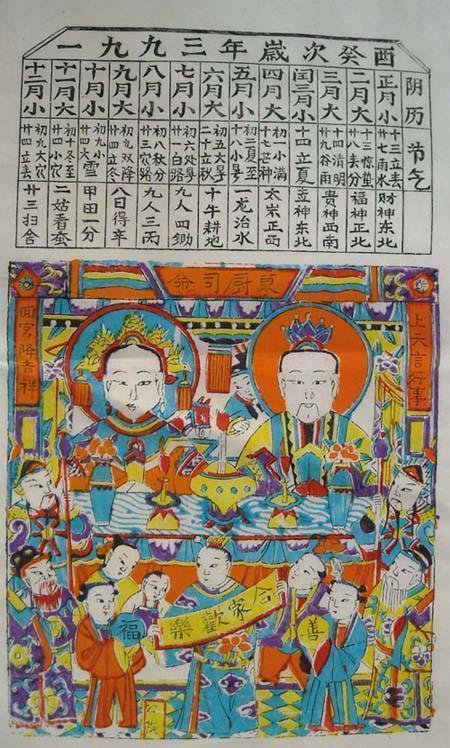 一九九三年歲次癸酉
阴历 节气
正月小 十三立春 廿七雨水 财神东北
二月大 十三惊蛰 廿八春分 福神正北
三月大 十四清明 廿九谷雨 贵神西南
闰三月小 十四立夏 喜神东北
四月大 初一小满 十七芒种 太岁正西
五月小 初二夏至 十八小暑 一龙治水
六月大 初五大暑 二十立秋 十牛耕地
七月小 初六处暑 廿一白路 九人四锄
八月小 初八秋分 廿三寒路 九人三丙
九月大 初九双降 廿四立冬 八日得辛
十月小 初九小雪 廿四大雪 甲田一分
十一月大 初十冬至 廿四小寒 二姑看蚕
十二月小 初九大寒 廿四立春 廿三扫舍
東厨司命
上天言行事
回宫降吉祥
合家歡樂
善
福